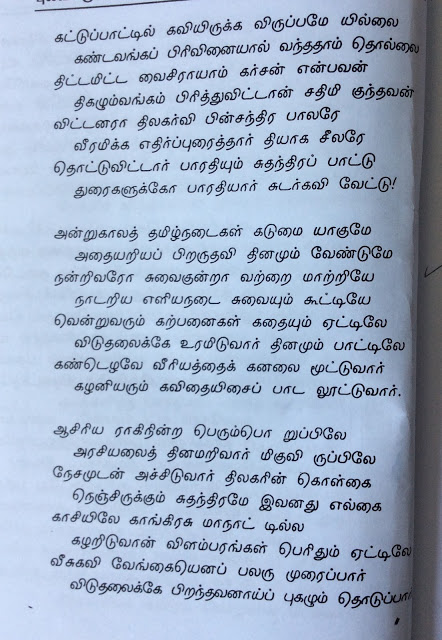 கட்டுப்பாட்டில் கவியிருக்க விருப்பமே யில்லை
கண்டவங்கப் பிரிவினையால் வந்ததாம் தொல்லை
திட்டமிட்ட வைசிராயாம் கர்சன் என்பவன்
திகழும்வங்கம் பிரித்துவிட்டான் சதிமி குந்தவன்
விட்டனரா திலகர்வி பின்சந்திர பாலரே
வீரமிக்க எதிர்ப்புரைத்தார் தியாக சீலரே
தொட்டுவிட்டார் பாரதியும் சுதந்திரப் பாட்டு
துரைகளுக்கோ பாரதியார் சுடர்கவி வேட்டு!
அன்றுகாலத் தமிழ்நடைகள் கடுமை யாகுமே
அதையறியப் பிறருதவி தினமும் வேண்டுமே
நன்றிவரோ சுவைகுன்றா வற்றை மாற்றியே
நாடறிய எளியநடை சுவையும் கூட்டியே
வென்றுவரும் கற்பனைகள் கதையும் ஏட்டிலே
விடுதலைக்கே உரமிடுவார் தினமும் பாட்டிலே
கண்டெழவே வீரியத்தைக் கனலை மூட்டுவார்
கழனியரும் கவிதையிசைப் பாட லூட்டுவார்.
ஆசிரிய ராகிநின்ற பெரும்பொ றுப்பிலே
அரசியலைத் தினமறிவார் மிகுவி ருப்பிலே
நேசமுடன் அச்சிடுவார் திலகரின் கொள்கை
நெஞ்சிருக்கும் சுதந்திரமே இவனது எல்கை
காசியிலே காங்கிரசு மாநாட் டில்ல
கழறிடுவான் விளம்பரங்கள் பெரிதும் ஏட்டிலே
வீசுகவி வேங்கையெனப் பலரு முரைப்பார்
விடுதலைக்கே பிறந்தவனாய்ப் புகழும் தொடுப்பார்